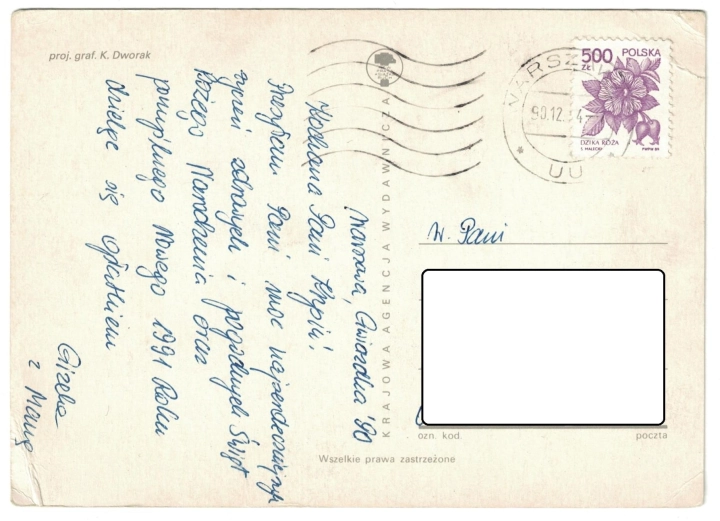 proj. graf. K. Dworak
Warszawa, Gwiazdka '90
Kochana Pani
Przesyłam Pani moc najserdeczniejszych
życzeń zdrowych i pogodnych Świąt
Bożego Narodzenia oraz
pomyślnego Nowego 1991 Roku
dzieląc się opłatkiem
Gizela
z Mamą
KRAJOWA AGENCJA WYDAWNICZA
WARSZ
90.12.
UU
500
ZŁ
POLSKA
DZIKA RÓŻA
PWPW 89
W. Pani
ozn. kod.
poczta
Wszelkie prawa zastrzeżone